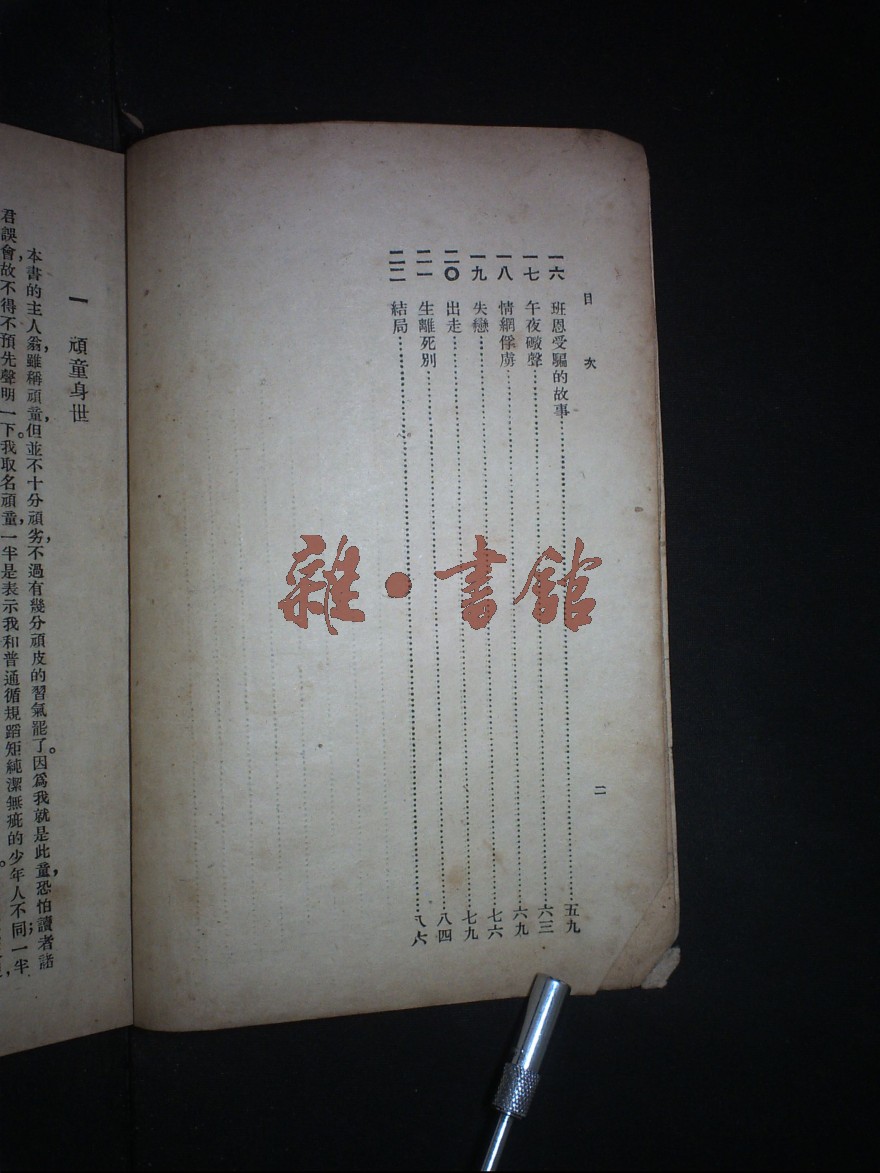 目次
一六 班恩受騙的故事 五九
一七 午夜礮聲 六三
一八 情網俘虜 六九
一九 失戀 七六
二〇 出走 七九
二一 生離死別 八四
二二 結局 八六
二
雜·書館
一 頑童身世
本書的主人翁，雖稱頑童，但並不十分頑劣，不過有幾分頑皮的習氣罷了。因爲我就是此童，恐怕讀者諸
君誤會，故不得不預先聲明一下。我取名頑童，一半是表示我和普通循規蹈矩純潔無疵的少年人不同；一半